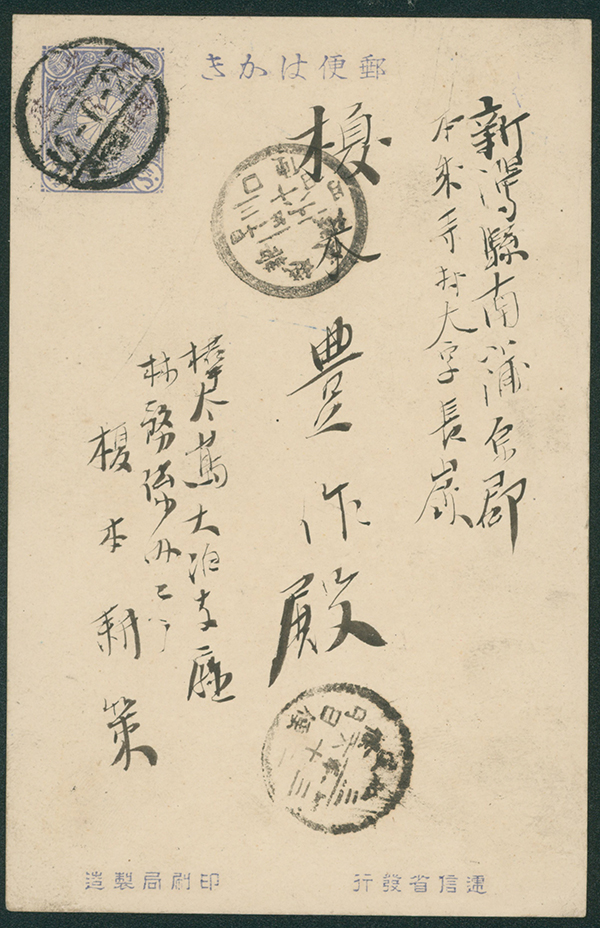 郵便はかき
新潟縣南蒲原郡
本成寺村大字長嶺
榎本豊作殿
樺太島大泊支廳
林務係
榎本耕策
逓信省發行
印刷局製造